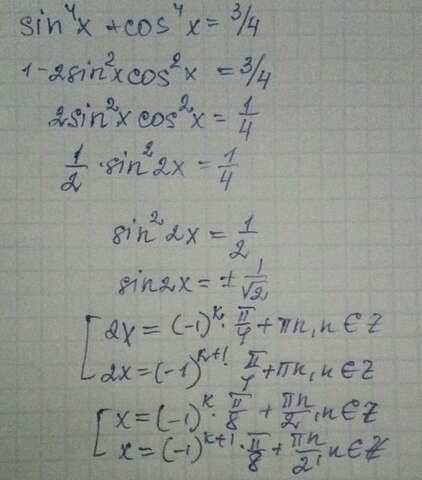 sin⁴x + cos⁴x = 3/4
1 - 2sin²xcos²x = 3/4
2sin²xcos²x = 1/4
1/2 · sin²2x = 1/4
sin²2x = 1/2
sin2x = ± 1/√2
[ 2x = (-1)ᵏ · π/4 + πn, n ∈ Z
2x = (-1)ᵏ⁺¹ · π/4 + πn, n ∈ Z
[ x = (-1)ᵏ · π/8 + πn/2, n ∈ Z
x = (-1)ᵏ⁺¹ · π/8 + πn/2, n ∈ Z